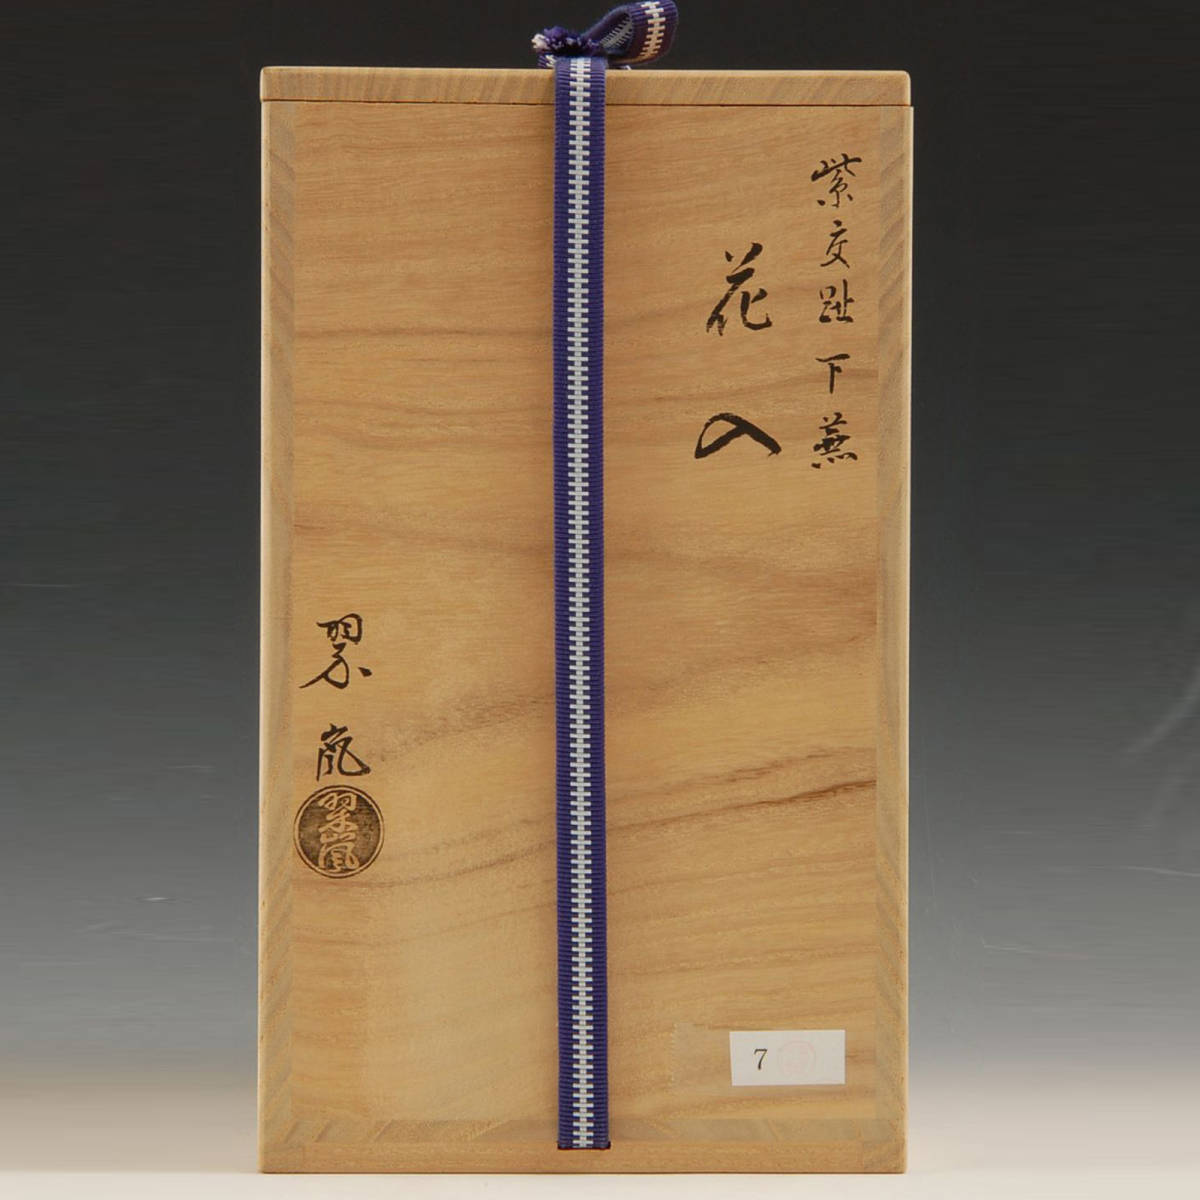 紫交趾下蕪
花入
翠嵐
翠嵐
7